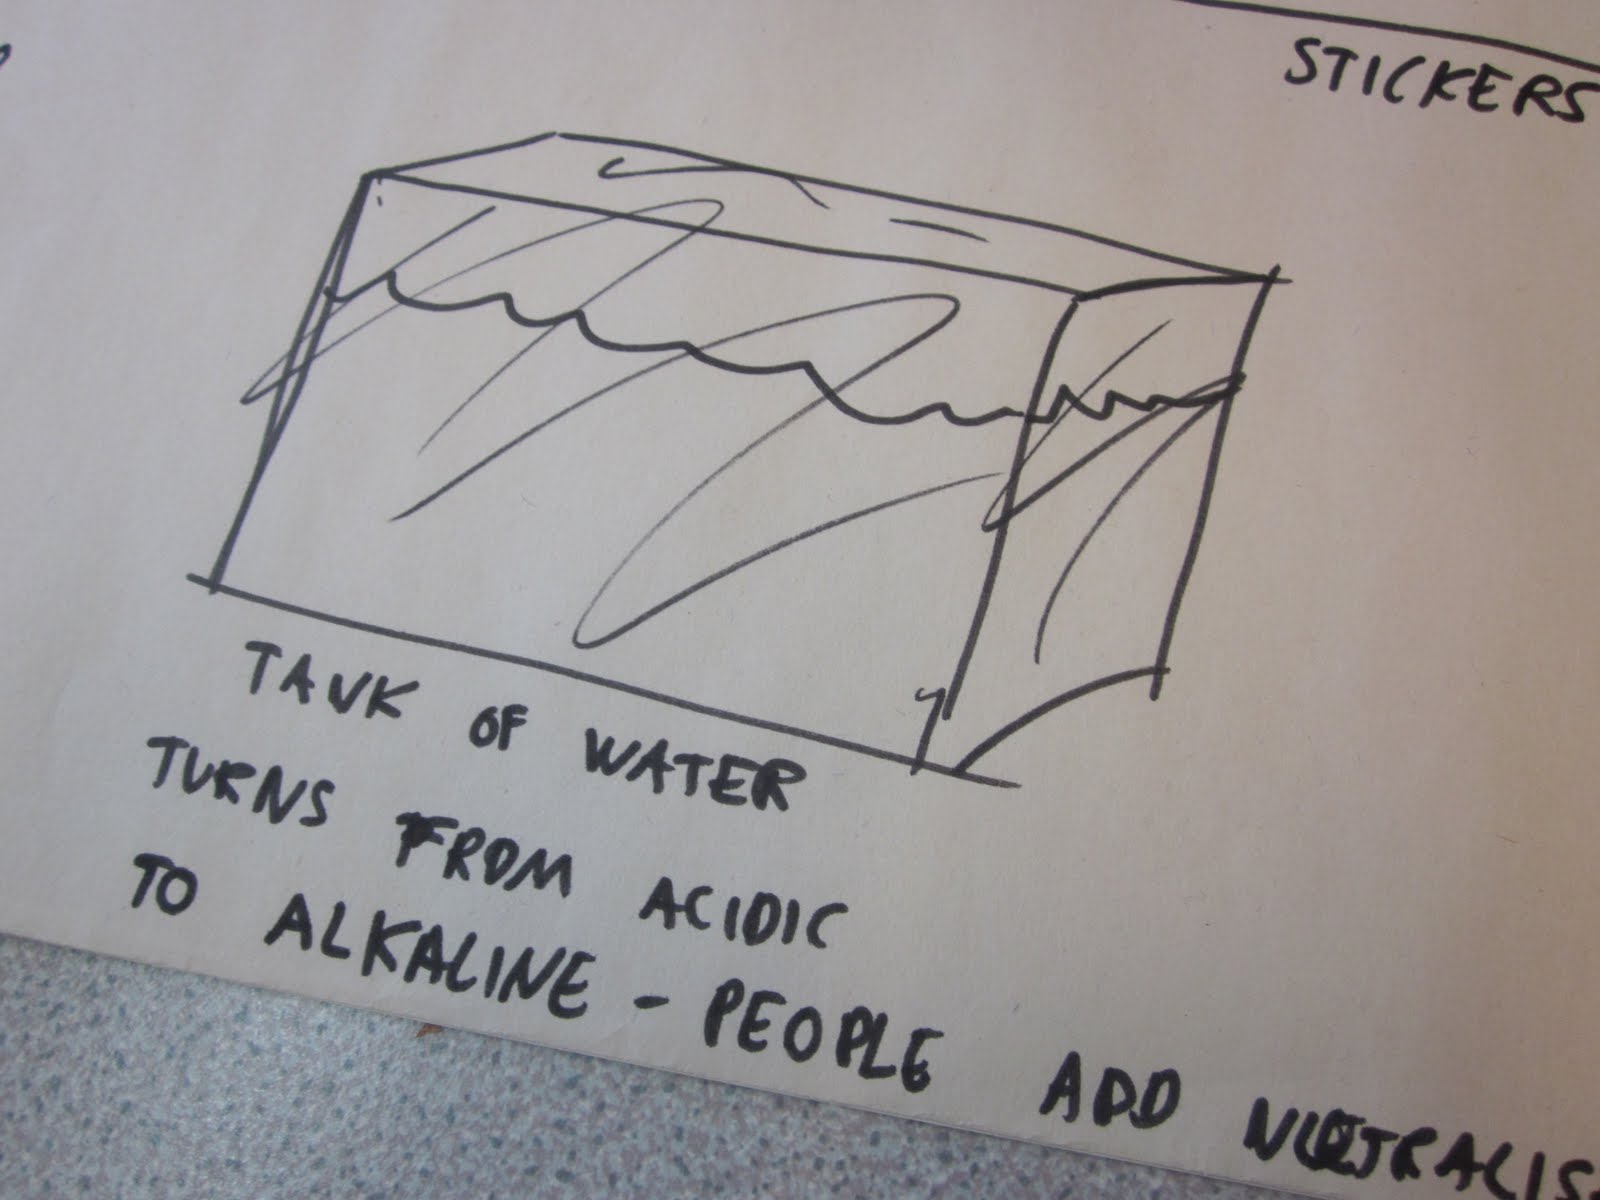 STICKERS
TANK OF WATER
TURNS FROM ACIDIC
TO ALKALINE - PEOPLE ADD NUETRALIS